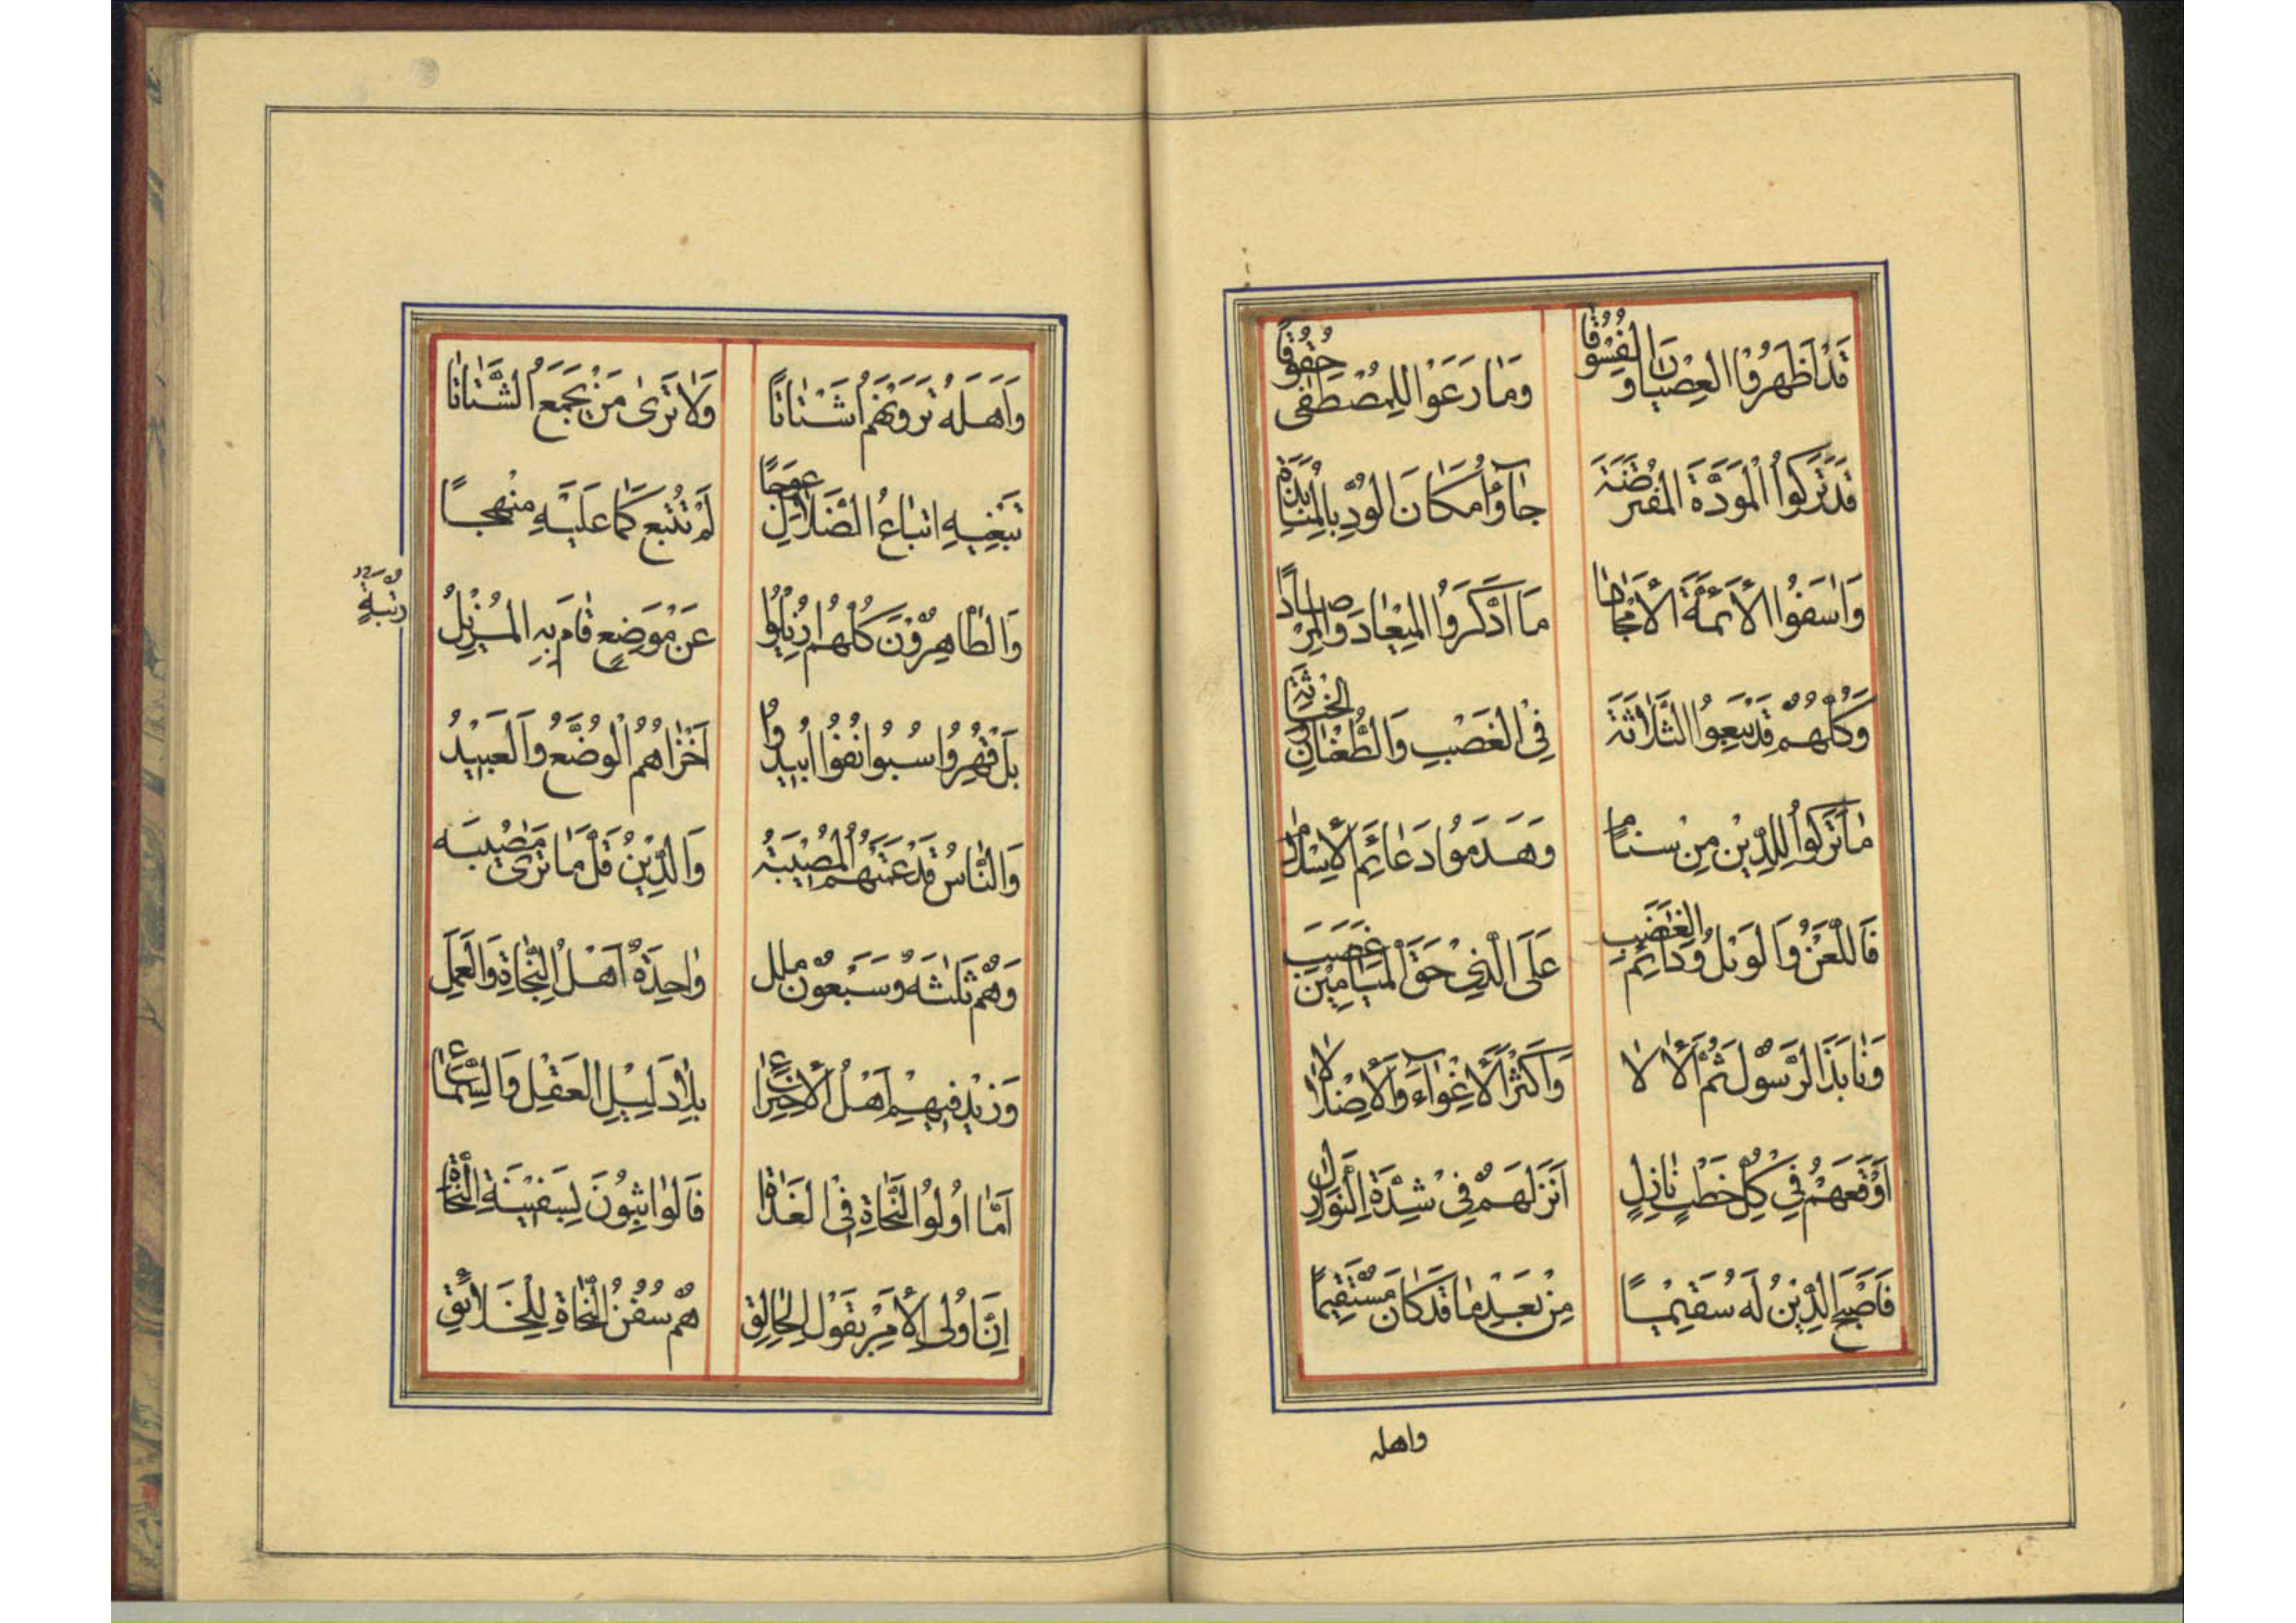 قَدْ اَظْهَرُوا العِصْيانَ وَالفُسُوقا وَمٰا رَعَوْا لِلمُصْطَفٰى حُقُوقًا
قَدْ تَرَكُوا الْمَوَدَّةَ المُفْتَرَضَةَ جٰآؤُا مَكَانَ الوُدِّ بِالْمُنٰابَذَةِ
وَاسَفُوا الأَئمَّةَ الأَمْجٰادا مَا ادَّكَرَوُا المِيْعٰادَ وَالمِرْصٰادًا
وَكُلُّهُمْ قَدْ تَبِعُوا الثَّلٰاثَةَ فِى الْغَصْبِ وَالطُّغْيٰانِ وَالخَبٰاثَةِ
مٰا تَرَكُوا لِلدِّيْنِ مِنْ سَنٰامٍ وَهَدَمَوُا دَعٰائِمَ الْاِسْلٰامِ
فَاللَّعْنُ وَالوَيْلُ وَدٰائِمُ الغَضَبِ عَلَى الَّذِيْ حَقَّ الْمَيٰامِيْنِ غَصَبَ
وَنٰابَذَ الرَّسُوْلَ ثُمَّ الْاٰلا وَاَكْثَرَ الْاِغْوٰآءَ وَالْاِضْلٰالا
اَوْقَعَهُمْ فِي كُلِّ خَطْبٍ نٰازِلٍ اَنْزَلَهُمْ فِيْ شِدَّةِ النَّوٰازِلِ
فَاَصْبَحَ الدِّيْنُ لَهُ سَقِيْمًا مِنْ بَعْدِ مٰا قَدْ كٰانَ مُسْتَقِيْمًا
واهله
وَاَهْلَهُ تَرَوْنَهُمْ اَشْتٰاتًا وَلٰا تَرٰى مَنْ يَجْمَعُ الشَّتٰاتا
تَبْغِيهِ اتباعُ الضَّلٰالِ عِوَجًا لَمْ تُتْبَعْ كَمٰا عَلَيْهِ مَنْهَجًا
وَالطّٰاهِرُوْنَ كُلُّهُمْ اُزِيْلُوا عَنْ مَوْضِعٍ قٰامَ بِهِ المُزِيْلُ
رُتْبَةٍ
بَلْ قُهِرُوا سُبُوا نُفُوا اُبِيدُوا اَخْزٰاهُمُ الْوُضَّعُ وَالْعَبِيْدُ
وَالنّٰاسُ قَدْ عَمَّتْهُمُ الْمُصِيْبَةُ وَالدِّيْنُ قَلَّ مٰا تَرٰى مُصِيْبَه
وَهُمْ ثَلٰثَةٌ وَسَبْعُوْنَ مِلَل وٰاحِدَةٌ اَهْلُ النَّجٰاةِ وَالْعَمَل
وَزِيْدَ فِيهِمْ اَهْلُ الْاِخْتِرٰاعِ بِلٰا دَلِيْلِ العَقْلِ وَالسَّمٰاعِ
اَمّٰا اُولُوا النَّجٰاةِ فِى الْغَدٰاةِ فَالوٰاثِبُونَ لِسَفِيْنَةِ النَّجٰاةِ
اِنَّ اُولِى الْاَمْرِ بِقَوْلِ الْخٰالِقِ هُمْ سُفُنُ النَّجٰاةِ لِلْخَلٰائِقِ